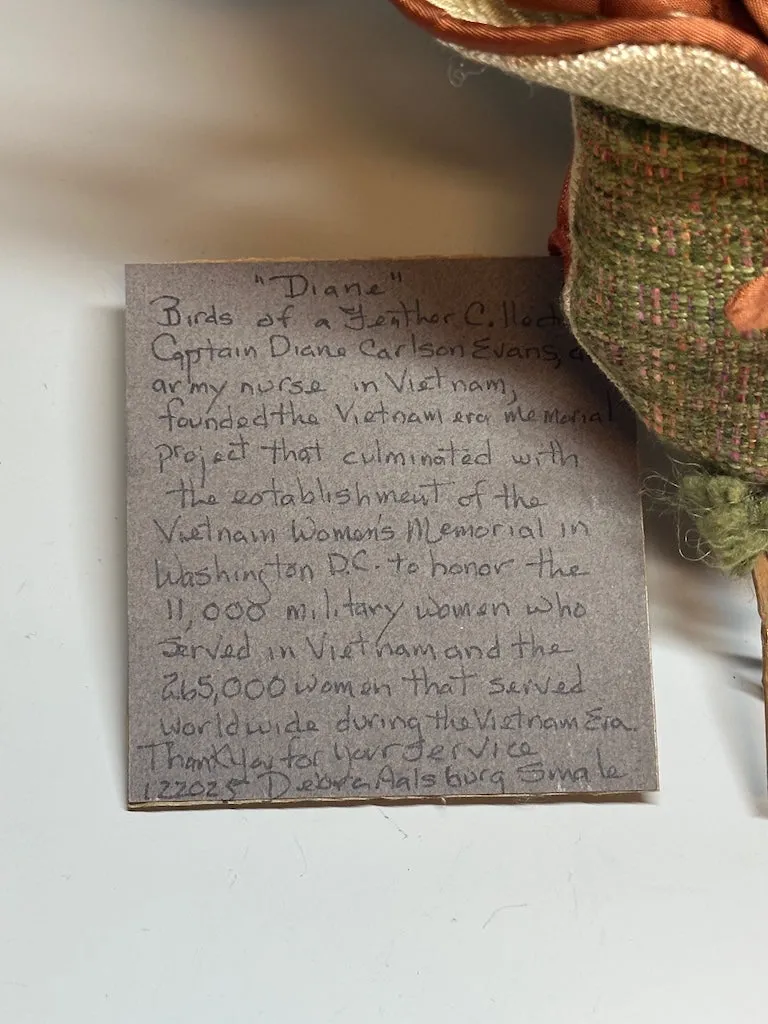 "Diane"
Birds of a Feather
Captain Diane Carlson Evans,
army nurse in Vietnam,
founded the Vietnam era memorial
project that culminated with
the establishment of the
Vietnam Women's Memorial in
Washington D.C. to honor the
11,000 military women who
served in Vietnam and the
265,000 women that served
worldwide during the Vietnam Era.
Thank You for your service
122025 Debra Aalsburg Smale